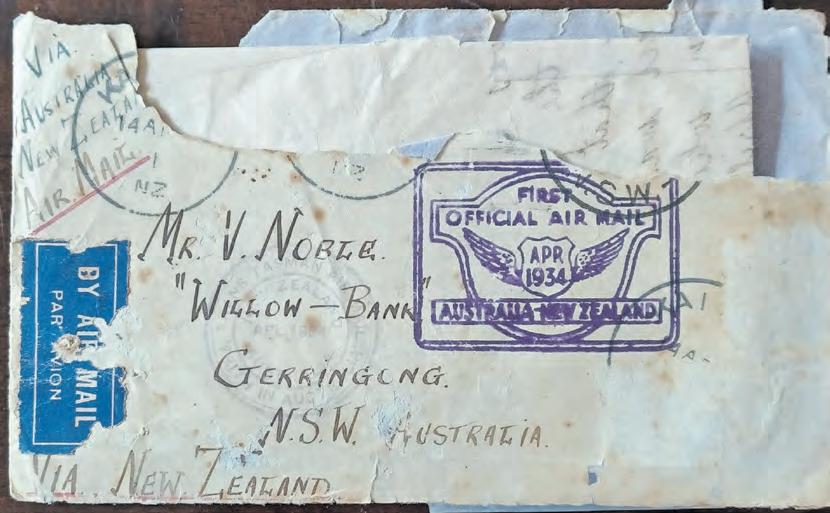 VIA
AUSTRALIA
NEW ZEALAN
AIR MAIL
KA
14 A
1
NZ
NZ
N.S.W.
FIRST
OFFICIAL AIR MAIL
APR
1934
AUSTRALIA-NEW ZEALAND
MR. V. NOBLE.
"WILLOW-BANK"
GERRINGONG.
N.S.W. AUSTRALIA.
BY AIR MAIL
PAR AVION
KAI
VIA NEW ZEALAND